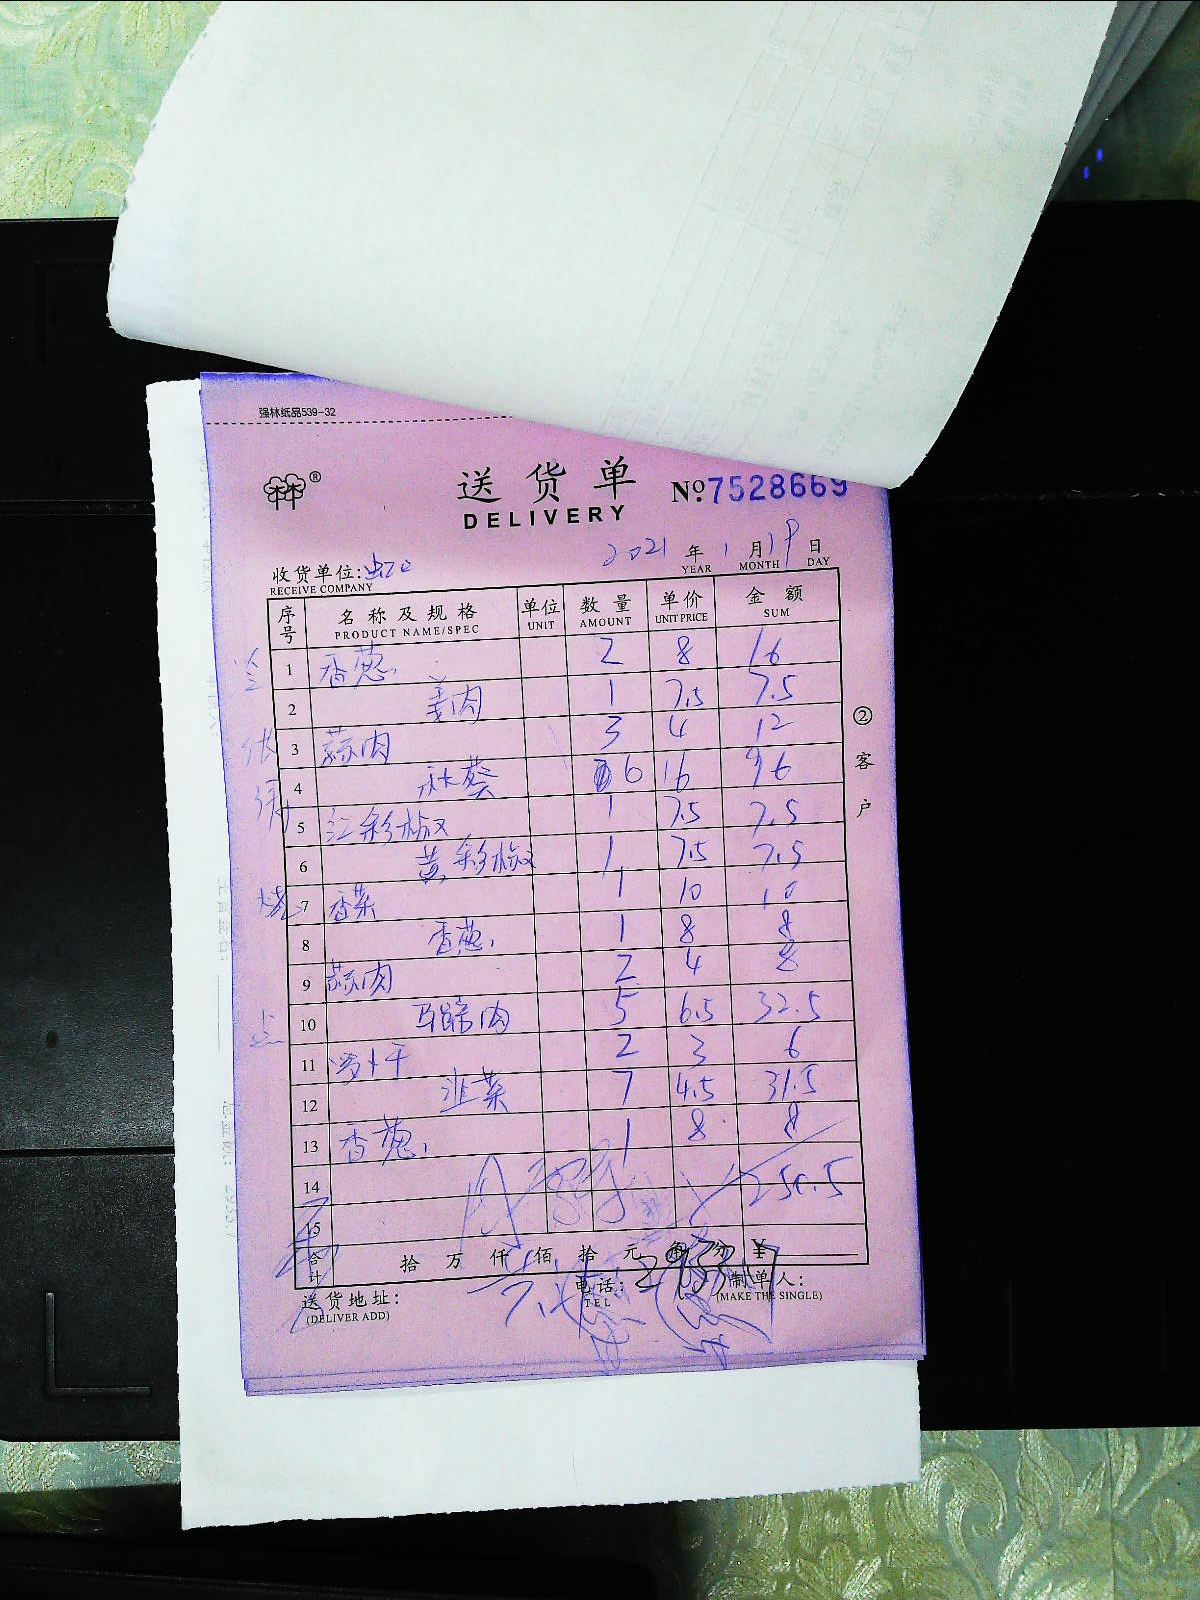 强林纸品539-32
林®
送货单 №7528669
DELIVERY
2021 年 1 月 19 日
YEAR MONTH DAY
收货单位:虹口
RECEIVE COMPANY
序号 名称及规格 单位 数量 单价 金额
PRODUCT NAME/SPEC UNIT AMOUNT UNIT PRICE SUM
1 香葱 2 8 16
2 姜肉 1 7.5 7.5
3 蒜肉 3 4 12
4 秋葵 6 16 96
5 红彩椒 1 7.5 7.5
6 黄彩椒 1 7.5 7.5
烧 7 香菜 1 10 10
8 香葱 1 8 8
9 蒜肉 2 4 8
点 10 马蹄肉 5 6.5 32.5
11 萝卜干 2 3 6
12 韭菜 7 4.5 31.5
13 香葱 1 8 8
14 250.5
15
合计 拾 万 仟 佰 拾 元 角 分 ¥
送货地址: 电话: 制单人:
(DELIVER ADD) TEL (MAKE THE SINGLE)
②客户